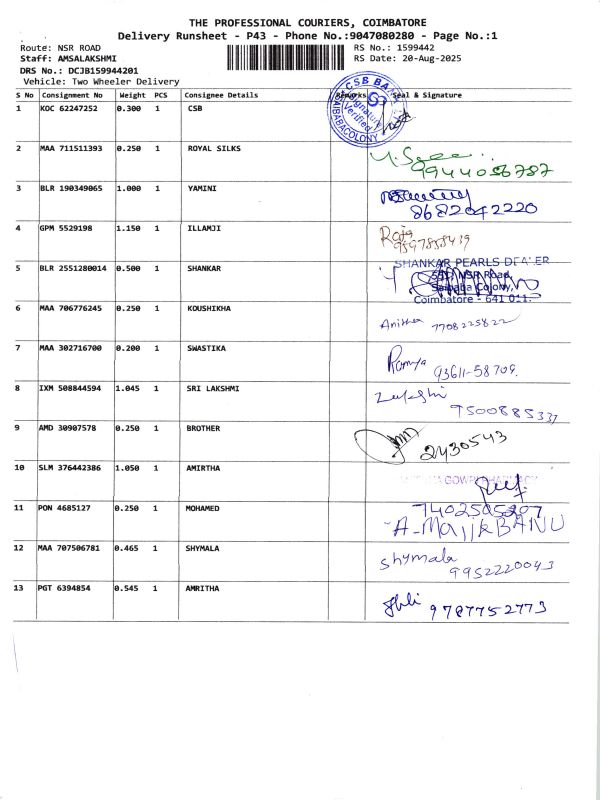 THE PROFESSIONAL COURIERS, COIMBATORE
Delivery Runsheet - P43 - Phone No.:9047080280 - Page No.:1
Route: NSR ROAD RS No.: 1599442
Staff: AMSALAKSHMI RS Date: 20-Aug-2025
DRS No.: DCJB159944201
Vehicle: Two Wheeler Delivery
S No Consignment No Weight PCS Consignee Details Remarks Seal & Signature
1 KOC 62247252 0.300 1 CSB
CSB BANK
Signature Verified
SAIBABACOLONY
2 MAA 711511393 0.250 1 ROYAL SILKS
9944056787
3 BLR 190349065 1.000 1 YAMINI
8682042220
4 GPM 5529198 1.150 1 ILLAMJI
Raja
9597855419
5 BLR 2551280014 0.500 1 SHANKAR
SHANKAR PEARLS DEALER
NSR Road,
Saibaba Colony,
Coimbatore - 641 011.
6 MAA 706776245 0.250 1 KOUSHIKHA
Anitha 7708225822
7 MAA 302716700 0.200 1 SWASTIKA
Ramya 93611-58709.
8 IXM 508844594 1.045 1 SRI LAKSHMI
9500885337
9 AMD 30907578 0.250 1 BROTHER
2430543
10 SLM 376442386 1.050 1 AMIRTHA
11 PON 4685127 0.250 1 MOHAMED
7402505207
A-MajikBANU
12 MAA 707506781 0.465 1 SHYMALA
Shymala
9952220043
13 PGT 6394854 0.545 1 AMRITHA
9787752773